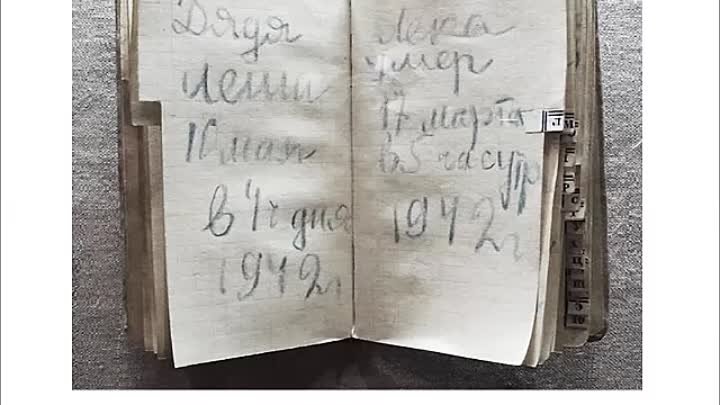 Дядя
Леша
10 мая
в 4 ч дня
1942 г
Лека
умер
17 марта
в 5 часутр
1942 г
Л М
Р
У
Х
Ц
Щ
Э
Ю